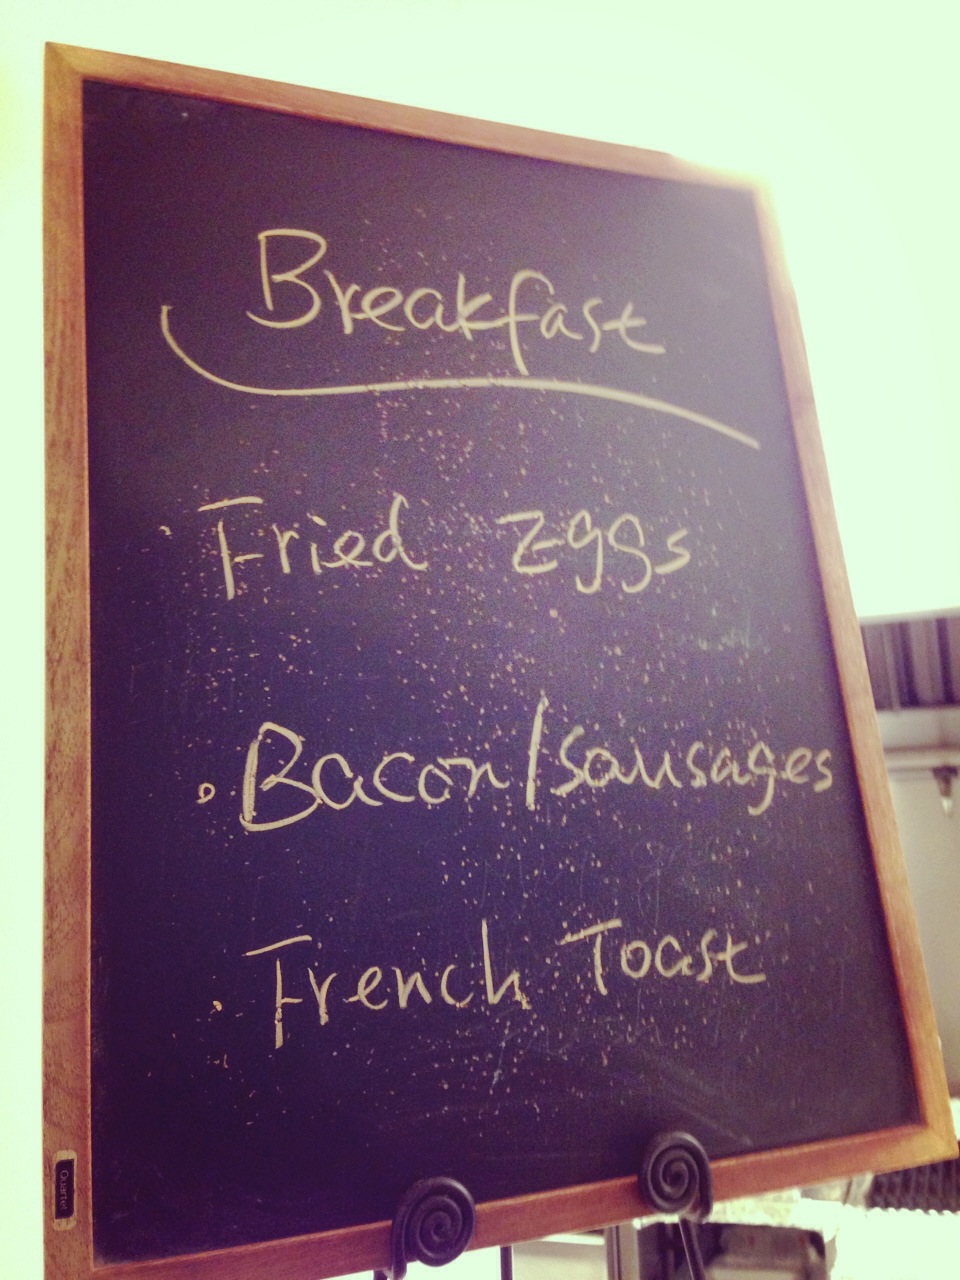 Breakfast
· Fried Eggs
· Bacon/Sausages
· French Toast
Quartet